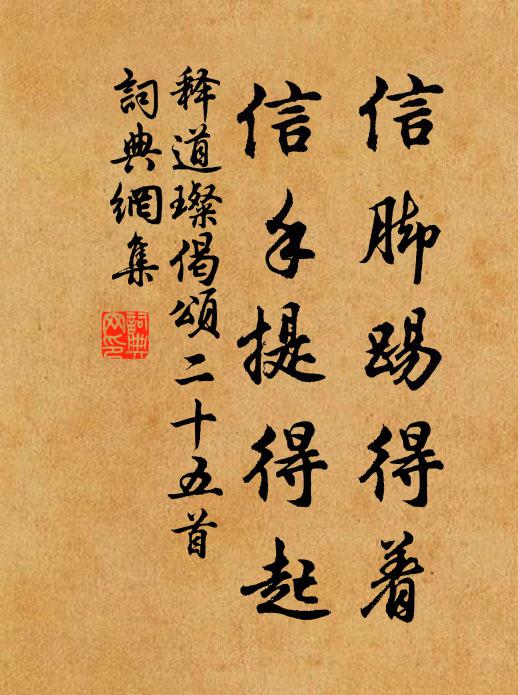 信脚踢得着
信手提得起
释道璨偈颂二十五首
詞典網集
詞典網印